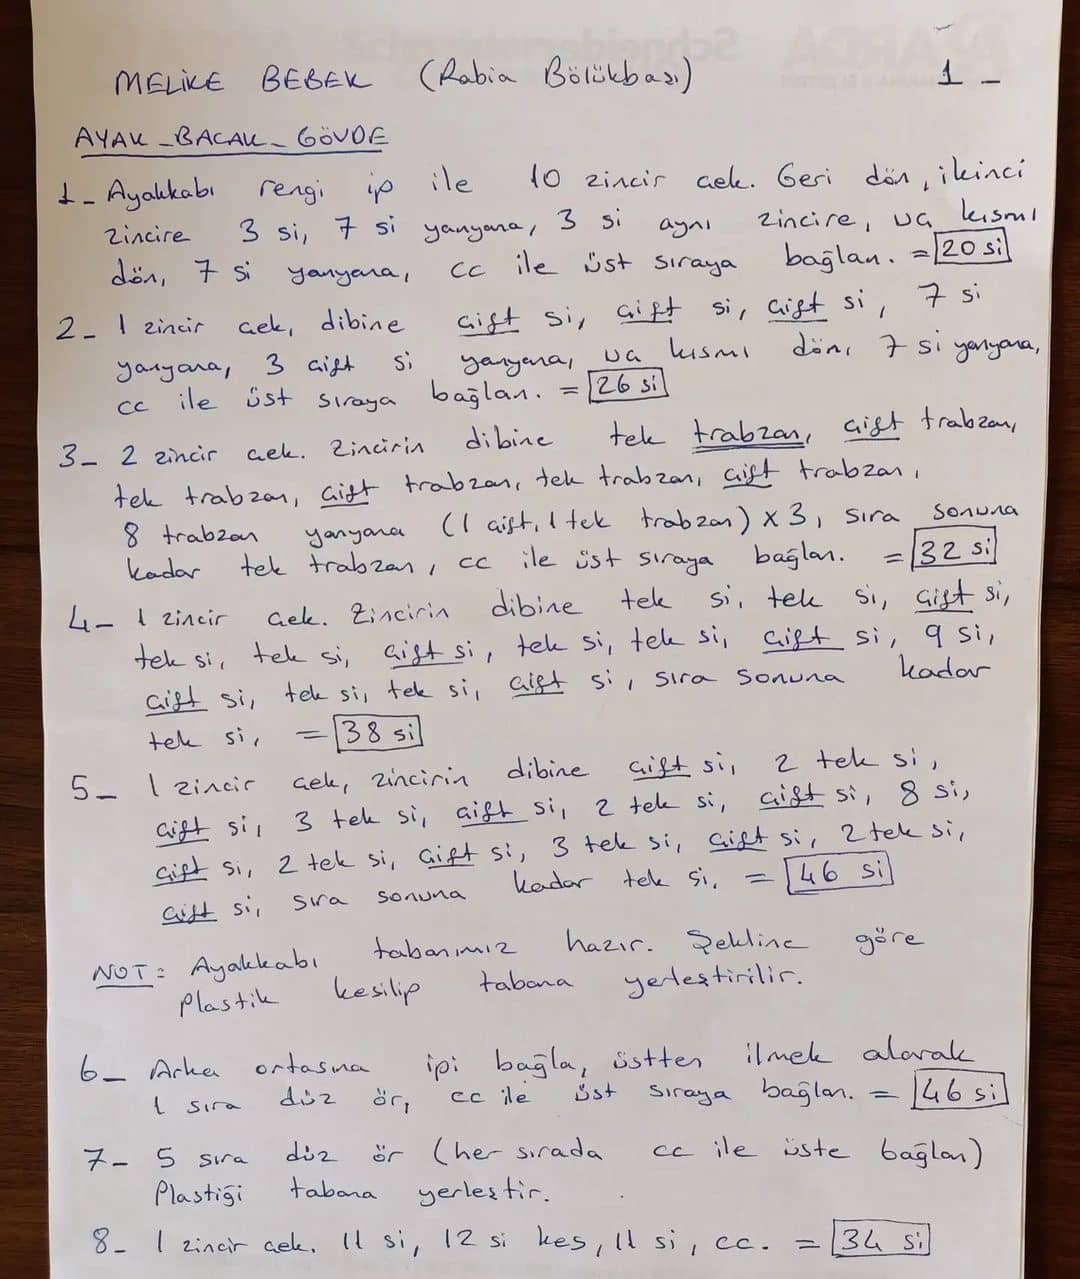 MELİKE BEBEK (Rabia Bölükbaşı) 1 -
AYAK - BACAK - GÖVDE
1 - Ayakkabı rengi ip ile 10 zincir çek. Geri dön, ikinci
zincire 3 si, 7 si yanyana, 3 si aynı zincire, uç kısmı
dön, 7 si yanyana, cc ile üst sıraya bağlan. = 20 si
2 - 1 zincir çek, dibine çift si, çift si, çift si, 7 si
yanyana, 3 çift si yanyana, uç kısmı dön, 7 si yanyana,
cc ile üst sıraya bağlan. = 26 si
3 - 2 zincir çek. Zincirin dibine tek trabzan, çift trabzan,
tek trabzan, çift trabzan, tek trabzan, çift trabzan,
8 trabzan yanyana (1 çift, 1 tek trabzan) x 3, sıra sonuna
kadar tek trabzan, cc ile üst sıraya bağlan. = 32 si
4 - 1 zincir çek. Zincirin dibine tek si, tek si, çift si,
tek si, tek si, çift si, tek si, tek si, çift si, 9 si,
çift si, tek si, tek si, çift si, sıra sonuna kadar
tek si, = 38 si
5 - 1 zincir çek, zincirin dibine çift si, 2 tek si,
çift si, 3 tek si, çift si, 2 tek si, çift si, 8 si,
çift si, 2 tek si, çift si, 3 tek si, çift si, 2 tek si,
çift si, sıra sonuna kadar tek si. = 46 si
NOT: Ayakkabı tabanımız hazır. Şekline göre
plastik kesilip tabana yerleştirilir.
6 - Arka ortasına ipi bağla, üstten ilmek alarak
1 sıra düz ör, cc ile üst sıraya bağlan. = 46 si
7 - 5 sıra düz ör (her sırada cc ile üste bağlan)
Plastiği tabana yerleştir.
8 - 1 zincir çek. 11 si, 12 si kes, 11 si, cc. = 34 si